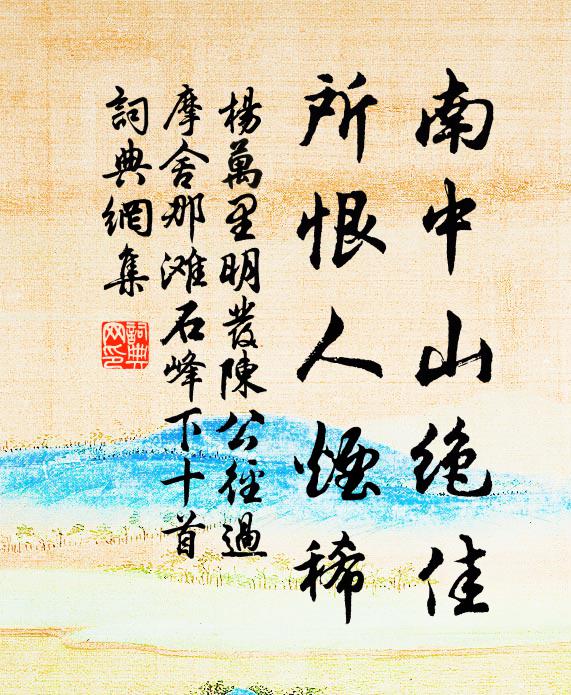 南中山絶佳
所恨人煙稀
楊萬里明發陳公徑過
摩舍那滩石峰下十首
詞典網集
詞典网印